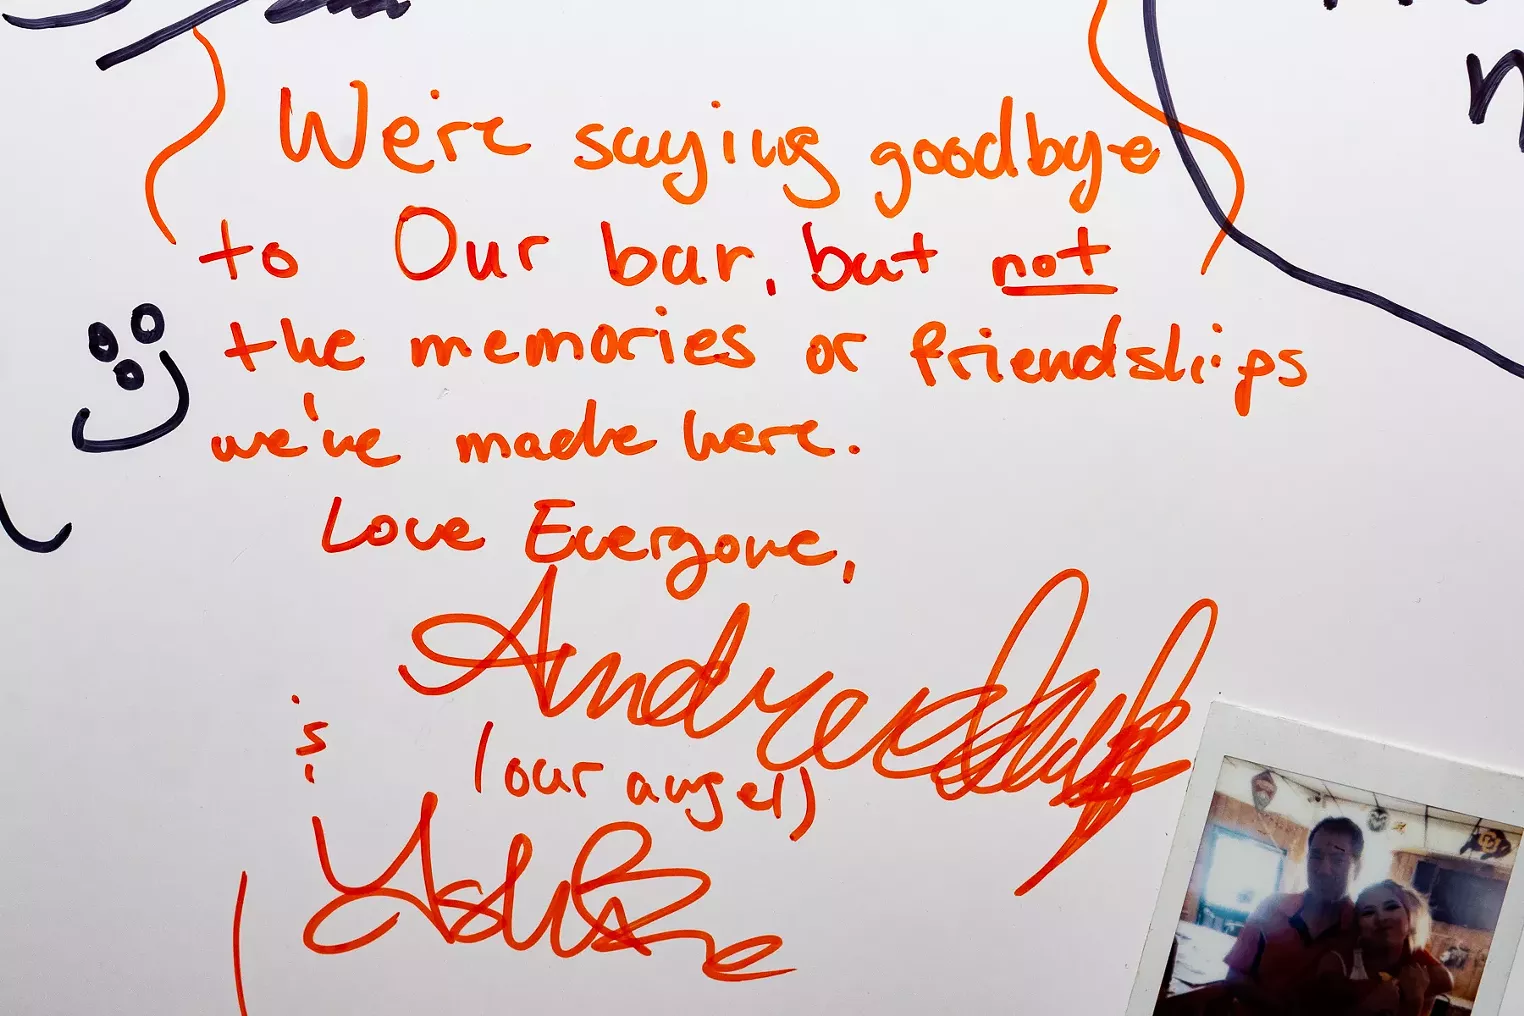 We're saying goodbye
to Our bar, but not
the memories or friendships
we've made here.
Love Everyone,
Andrew
(our angel)